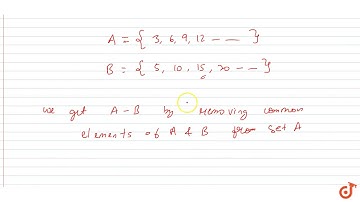 A = { 3, 6, 9, 12 – – – }
B = { 5, 10, 15, 20 – – }
we get A – B by removing common
elements of A & B from set A